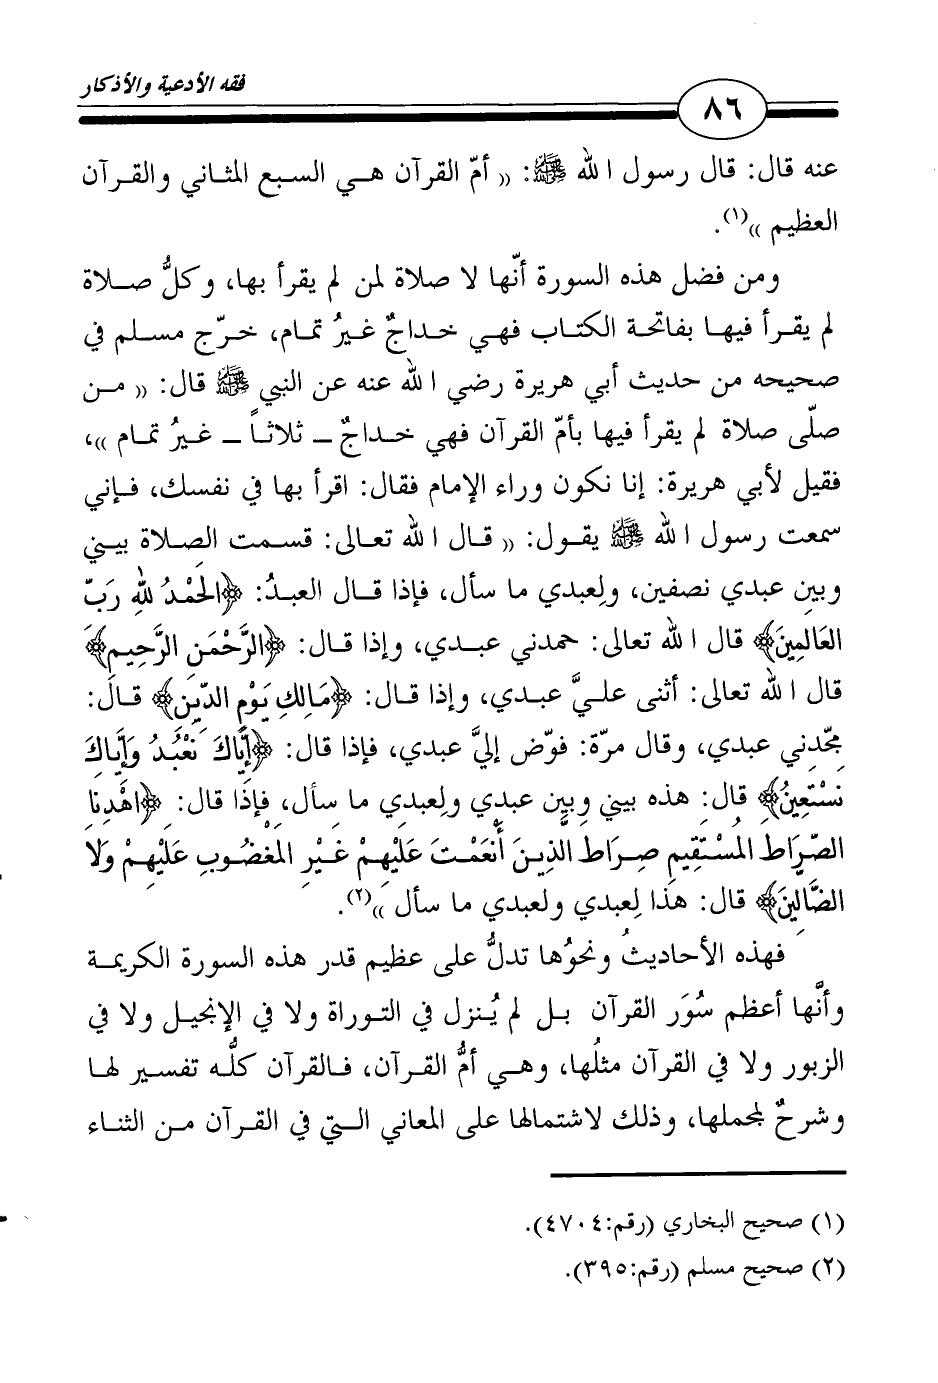 فقه الأدعية والأذكار
٨٦
عنه قال: قال رسول الله ﷺ: « أمّ القرآن هـي السبع المثاني والقـرآن
العظيم »(١).
ومن فضل هذه السورة أنّها لا صلاة لمن لم يقرأ بها، وكلُّ صـلاة
لم يقرأ فيهـا بفاتحة الكتـاب فهـي خـداجٌ غيرُ تمـام، خـرّج مسـلم في
صحيحه من حديث أبي هريرة رضي الله عنه عن النبي ﷺ قال: « مـن
صلّى صلاة لم يقرأ فيها بأمّ القرآن فهي خـداجٌ – ثلاثـاً – غـيرُ تمـام »،
فقيل لأبي هريرة: إنا نكون وراء الإمام فقال: اقرأ بها في نفسك، فـإني
سمعت رسول الله ﷺ يقـول: « قـال الله تعالى: قسمت الصـلاة بيـني
وبين عبدي نصفين، ولعبدي ما سأل، فإذا قـال العبـدُ: ﴿الحَمْدُ للهِ رَبّ
العَالمِينَ﴾ قال الله تعالى: حمدني عبـدي، وإذا قـال: ﴿الرَّحْمَنِ الرَّحِيمِ﴾
قال الله تعالى: أثنى علـيَّ عبـدي، وإذا قـال: ﴿مَالِكِ يَوْمِ الدِّينِ﴾ قـال:
مجّدني عبدي، وقال مرّة: فوّض إليَّ عبدي، فإذا قال: ﴿إِيَّاكَ نَعْبُدُ وَإِيَّاكَ
نَسْتَعِينُ﴾ قال: هذه بيني وبين عبدي ولعبدي ما سأل، فإذا قال: ﴿اهْدِنَا
الصِّرَاطَ المُسْتَقِيمَ صِرَاطَ الَّذِينَ أَنْعَمْتَ عَلَيْهِمْ غَيْرِ المَغْضُوبِ عَلَيْهِمْ وَلَا
الضَّالِّينَ﴾ قال: هذا لعبدي ولعبدي ما سأل »(٢).
فهذه الأحاديثُ ونحوُها تدلُّ على عظيم قدر هذه السورة الكريمـة
وأنَّها أعظم سُوَر القرآن بـل لم يُنزل في التـوراة ولا في الإنجيـل ولا في
الزبور ولا في القرآن مثلُها، وهـي أمُّ القـرآن، فـالقرآن كلُّـه تفسـير لهـا
وشرحٌ لمجملها، وذلك لاشتمالها على المعاني الـتي في القـرآن مـن الثنـاء
(١) صحيح البخاري (رقم:٤٧٠٤).
(٢) صحيح مسلم (رقم:٣٩٥).